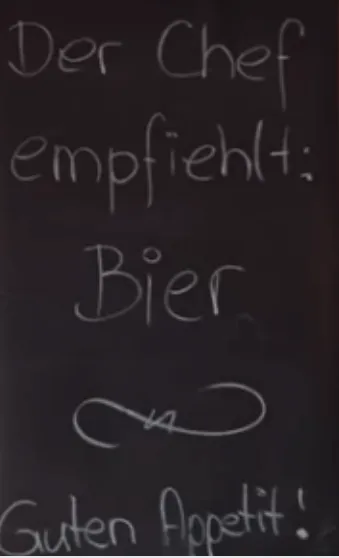 Der Chef
empfiehlt:
Bier
Guten Appetit!